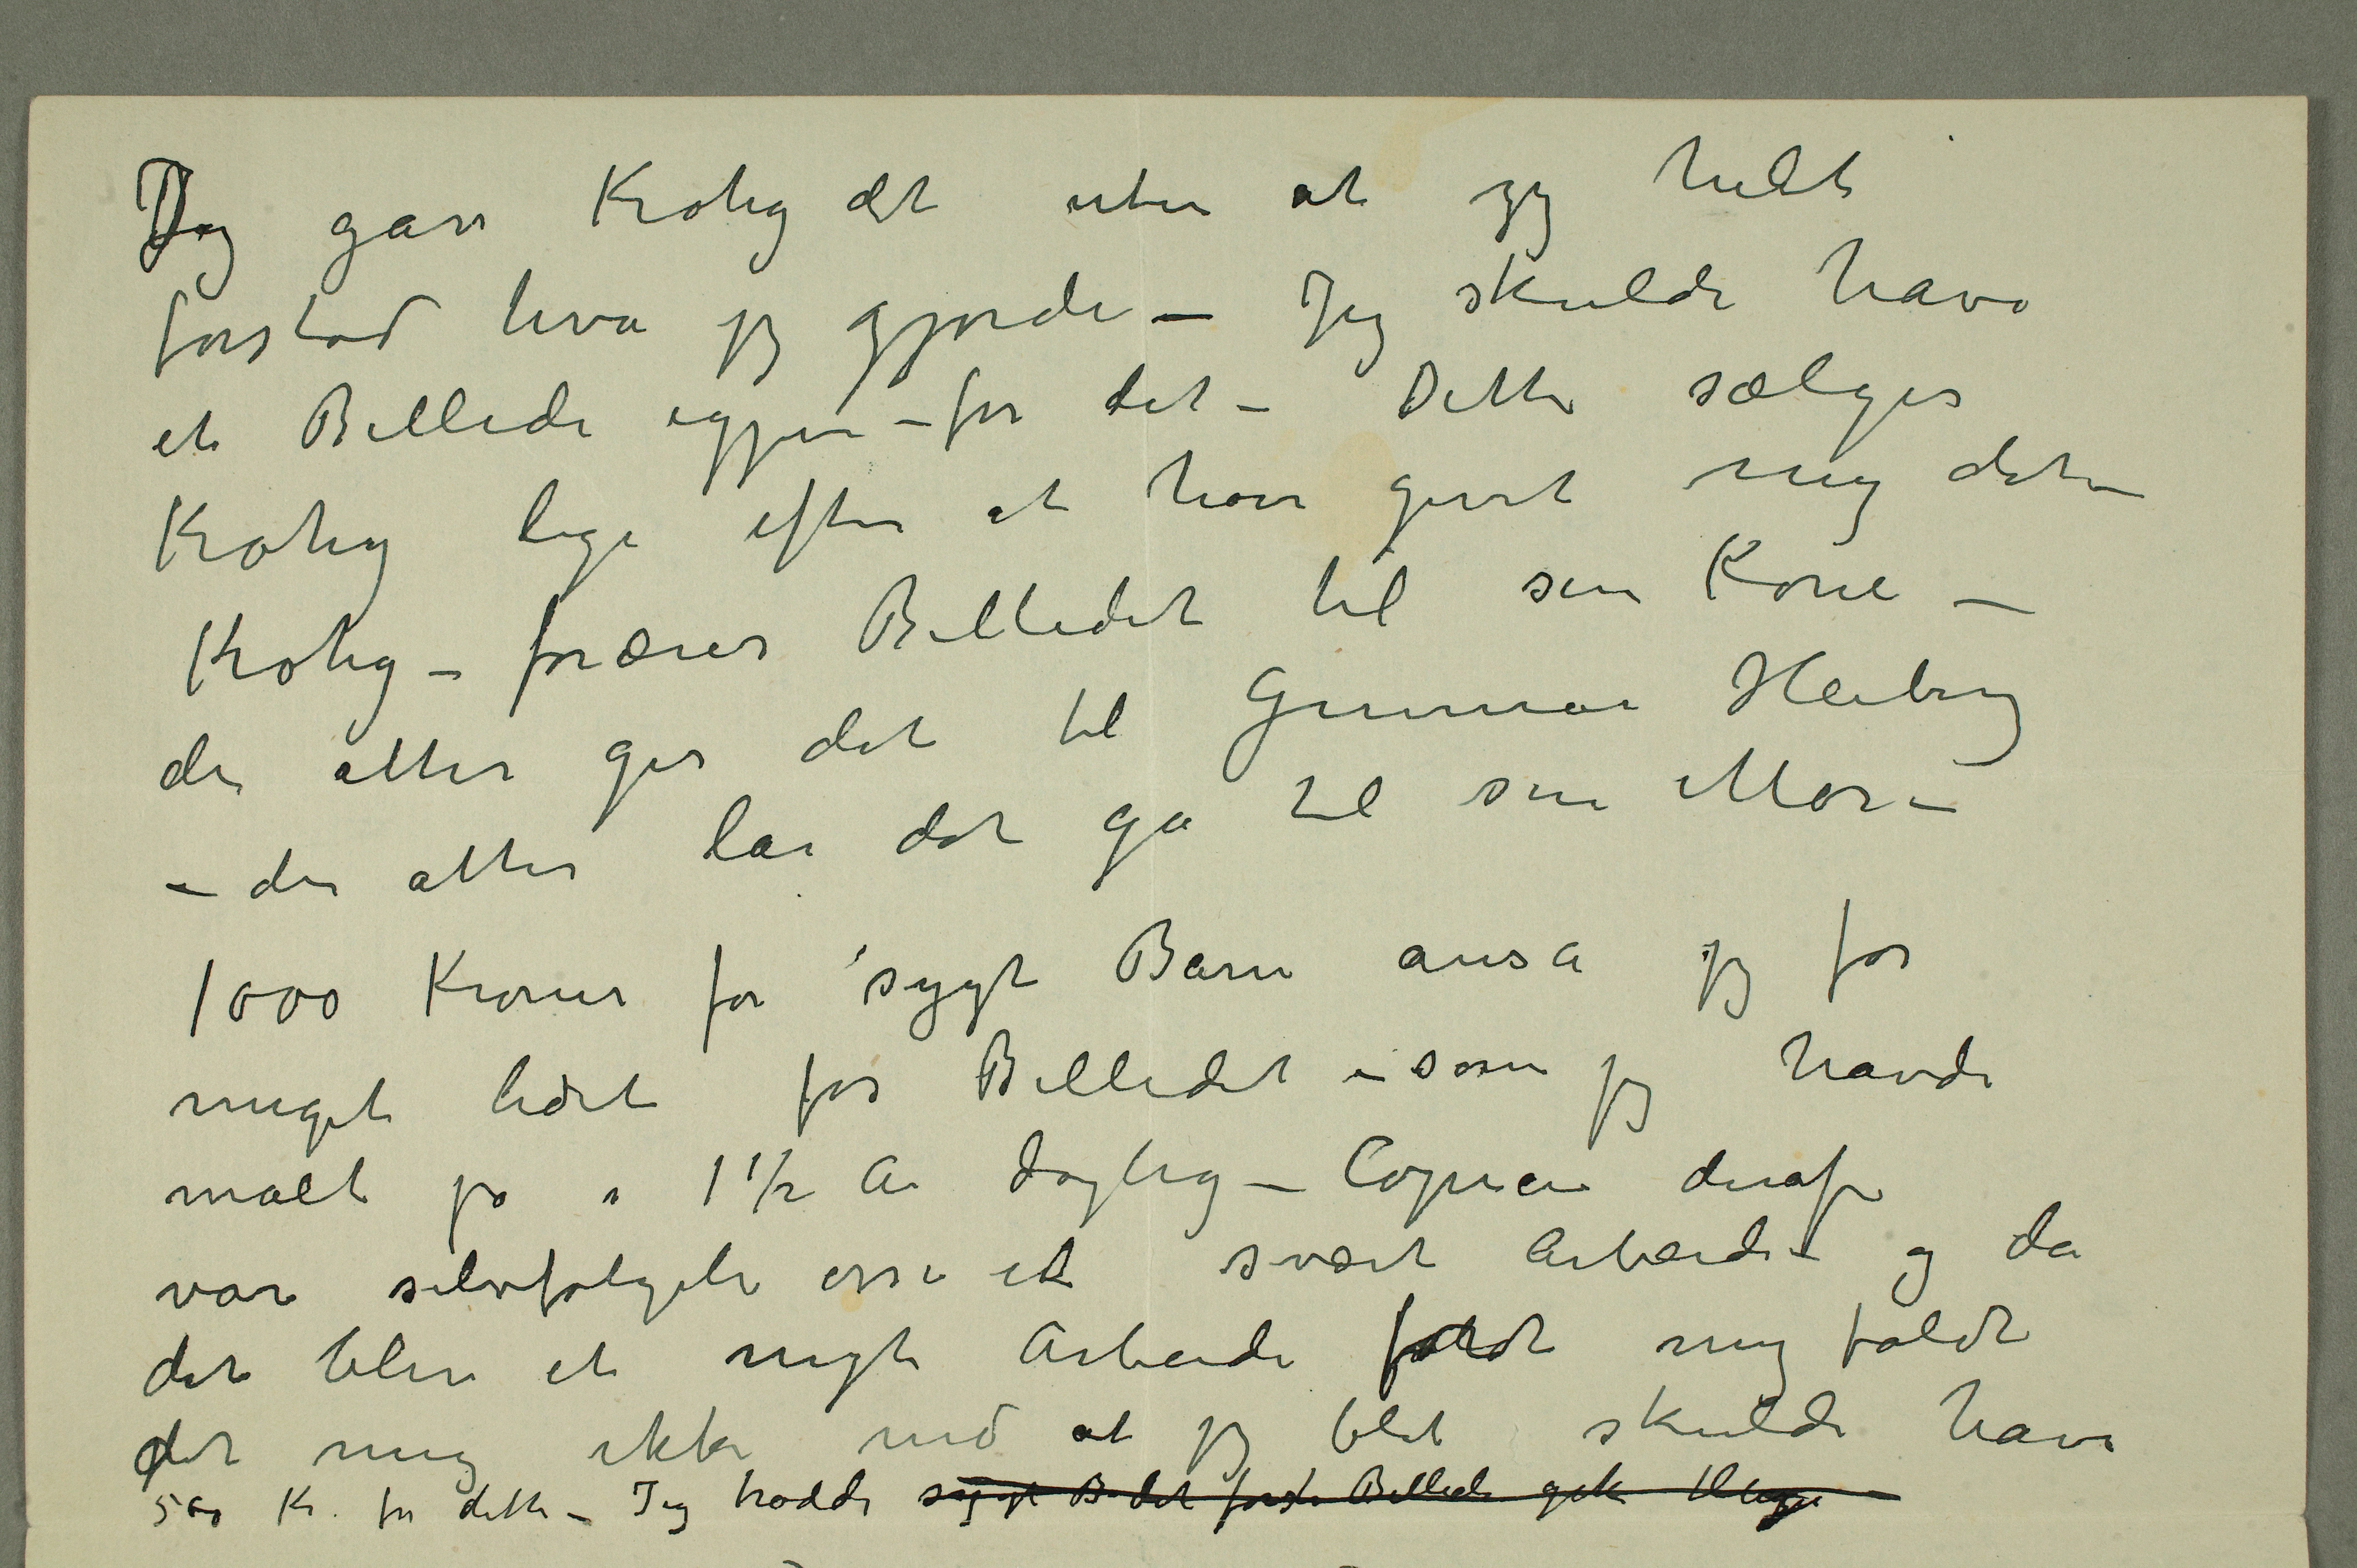 Jeg gav Krohg det uten at jeg helt
forstod hva jeg gjorde – Jeg skulde have
et Billede igjen – for det – Dette sælges
Krohg lige efter at have givet mig det –
Krohg – forærer Billedet til sin Kone –
der atter ger det til Gunnar Heiberg
– der atter lar det gå til sin Mor –
1000 Kroner for sygt Barn anså jeg for
meget lidet for Billedet – som jeg havde
malt på i 1 1/2 År daglig – Copien deraf
var selvfølgeli osse et svært Arbeide – og da
det blev et nyt Arbeide faldt mig faldt
det mig ikke ind at jeg blot skulde have
500 Kr. for dette – Jeg trodde sygt B det første Billede gik tilligge